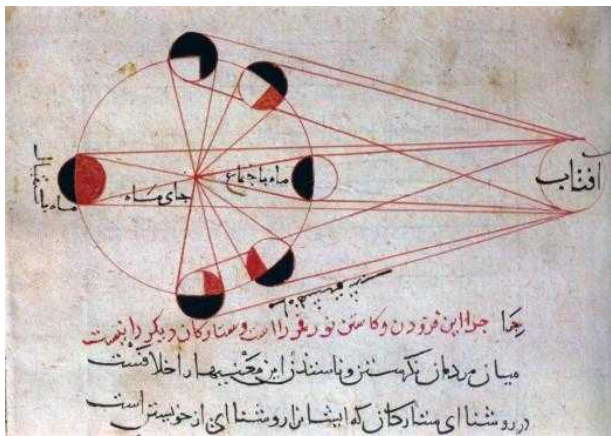 افتاب
ماه باجتماع
جای ماه
ماه باستقبال
جرا این فزودن و کاستن نور قمر را است و ستارکان دیکر را نیست
میان مردمان نکرستن این معنیها را خلافست
در روشنای ستارکان که ایشانرا روشنای از خویشتن است